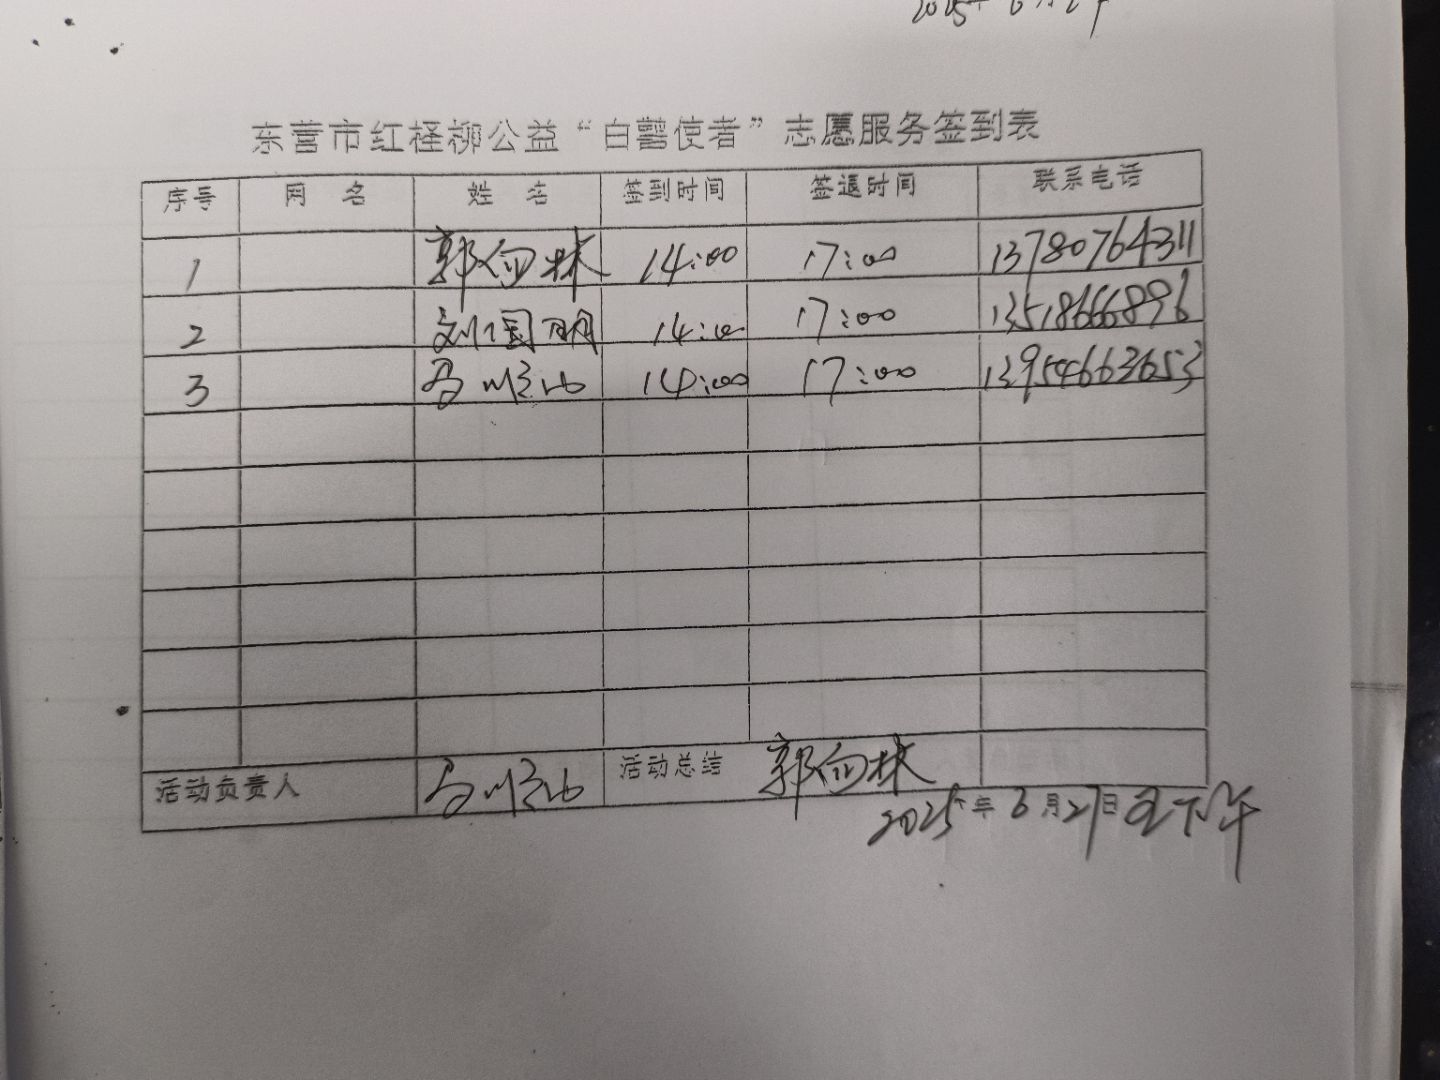 2025年6月27
东营市红柽柳公益“白鹭使者”志愿服务签到表
序号 网 名 姓 名 签到时间 签退时间 联系电话
1 郭向林 14:00 17:00 13780764311
2 刘国明 14:00 17:00 13518666896
3 14:00 17:00 13954663653
活动负责人 活动总结 郭向林
2025年6月27日 下午